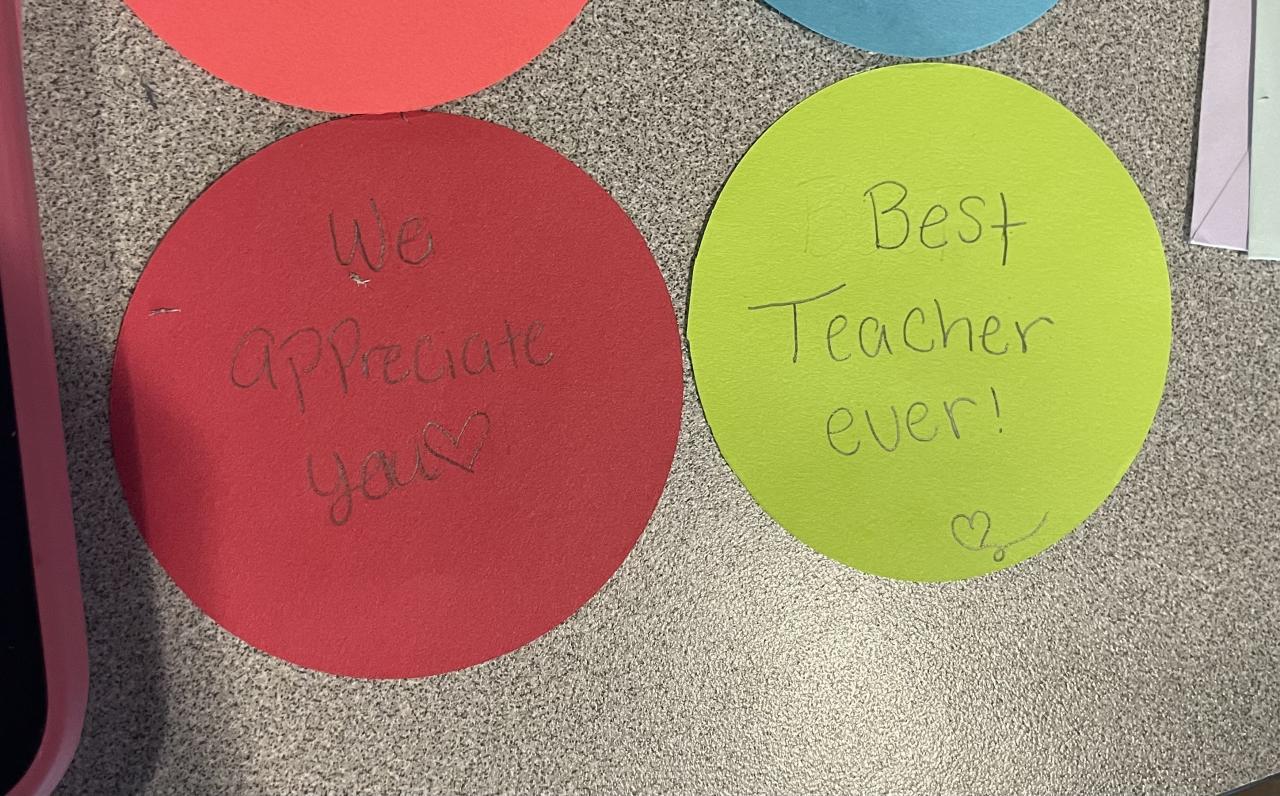 We
appreciate
you♡
Best
Teacher
ever!